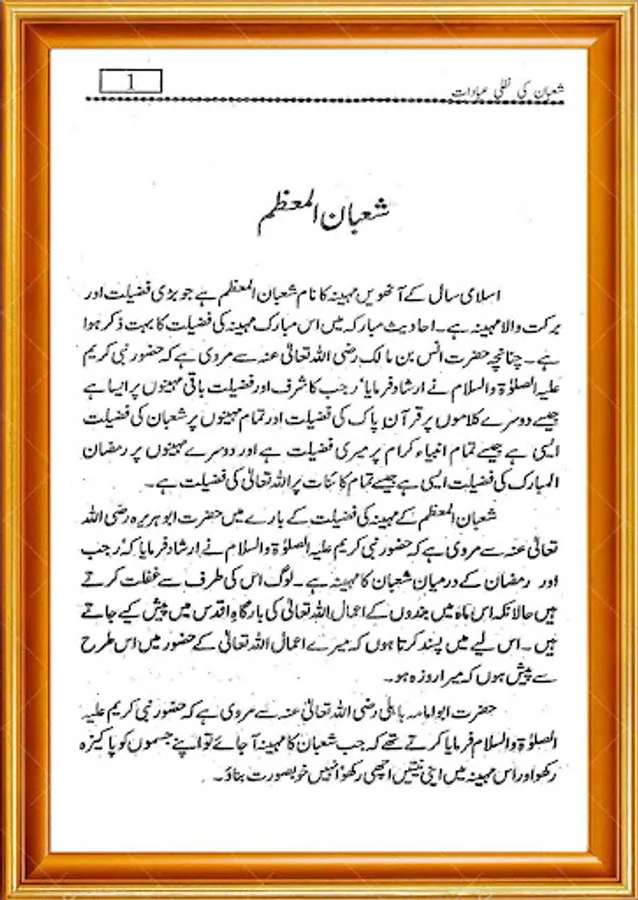 شعبان کی نفلی عبادات
1
شعبان المعظم
اسلامی سال کے آٹھویں مہینہ کا نام شعبان المعظم ہے جو بڑی فضیلت اور
برکت والا مہینہ ہے۔ احادیث مبارکہ میں اس مبارک مہینہ کی فضیلت کا بہت ذکر ہوا
ہے۔ چنانچہ حضرت انس بن مالک رضی اللہ تعالیٰ عنہ سے مروی ہے کہ حضور نبی کریم
علیہ الصلوٰۃ والسلام نے ارشاد فرمایا ’رجب کا شرف اور فضیلت باقی مہینوں پر ایسا ہے
جیسے دوسرے کلاموں پر قرآن پاک کی فضیلت اور تمام مہینوں پر شعبان کی فضیلت
ایسی ہے جیسے تمام انبیاء کرام پر میری فضیلت ہے اور دوسرے مہینوں پر رمضان
المبارک کی فضیلت ایسی ہے جیسے تمام کائنات پر اللہ تعالیٰ کی فضیلت ہے۔
شعبان المعظم کے مہینہ کی فضیلت کے بارے میں حضرت ابو ہریرہ رضی اللہ
تعالیٰ عنہ سے مروی ہے کہ حضور نبی کریم علیہ الصلوٰۃ والسلام نے ارشاد فرمایا کہ ’رجب
اور رمضان کے درمیان شعبان کا مہینہ ہے۔ لوگ اس کی طرف سے غفلت کرتے
ہیں حالانکہ اس ماہ میں بندوں کے اعمال اللہ تعالیٰ کی بارگاہِ اقدس میں پیش کیے جاتے
ہیں۔ اس لیے میں پسند کرتا ہوں کہ میرے اعمال اللہ تعالیٰ کے حضور میں اس طرح
سے پیش ہوں کہ میرا روزہ ہو۔
حضرت ابوامامہ باہلی رضی اللہ تعالیٰ عنہ سے مروی ہے کہ حضور نبی کریم علیہ
الصلوٰۃ والسلام فرمایا کرتے تھے کہ جب شعبان کا مہینہ آ جائے تو اپنے جسموں کو پاکیزہ
رکھو اور اس مہینہ میں اپنی نیتیں اچھی رکھو’ انہیں خوبصورت بناؤ۔